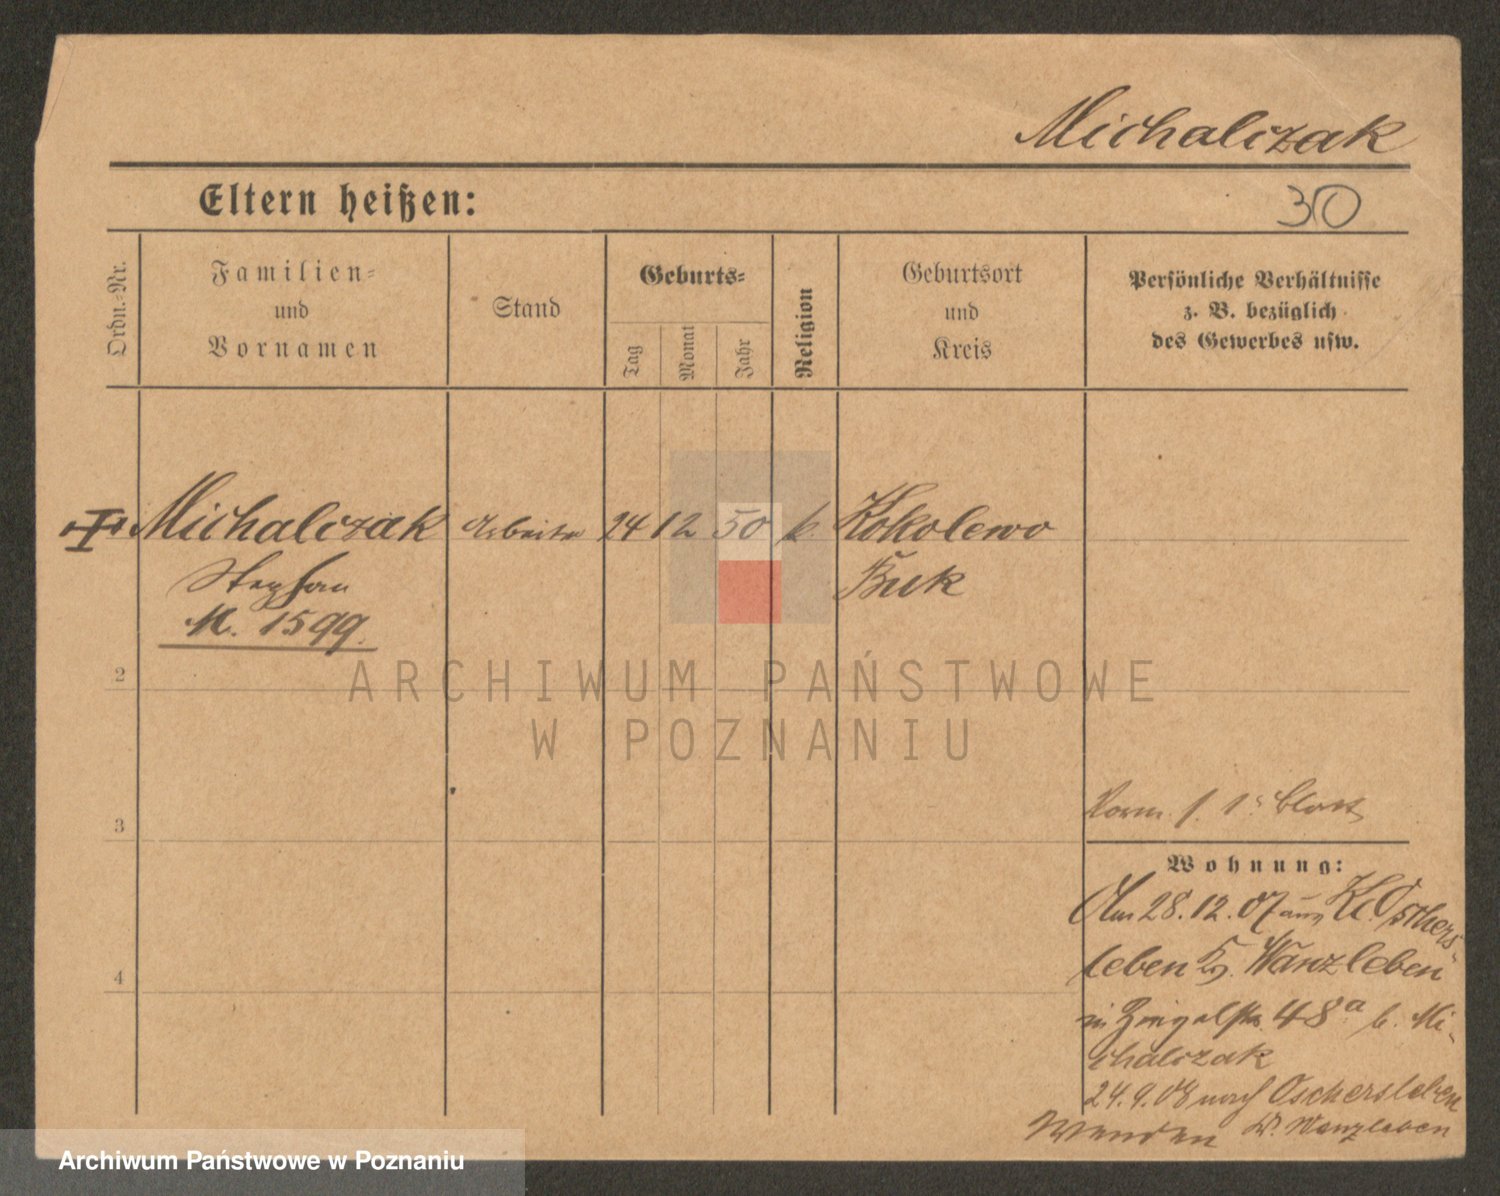 Michalczak
Eltern heißen:
30
Ordn.-Nr.
Familien-
und
Vornamen
Stand
Geburts-
Tag
Monat
Jahr
Religion
Geburtsort
und
Kreis
Persönliche Verhältnisse
z. B. bezüglich
des Gewerbes usw.
Michalczak Arbeiter 24 12 50 k. Kokolewo
Stephan Buk
M. 1599.
2
3
4
Vorm. f. 1s Blatt
Wohnung:
Am 28.12.07 aus Kl. Osthers
leben Kr. Wanzleben
in Ziegelstr. 48a b. Mi-
chalczak
24.9.08 nach Oschersleben
Wenden Kr. Wanzleben
ARCHIWUM PAŃSTWOWE
W POZNANIU
Archiwum Państwowe w Poznaniu